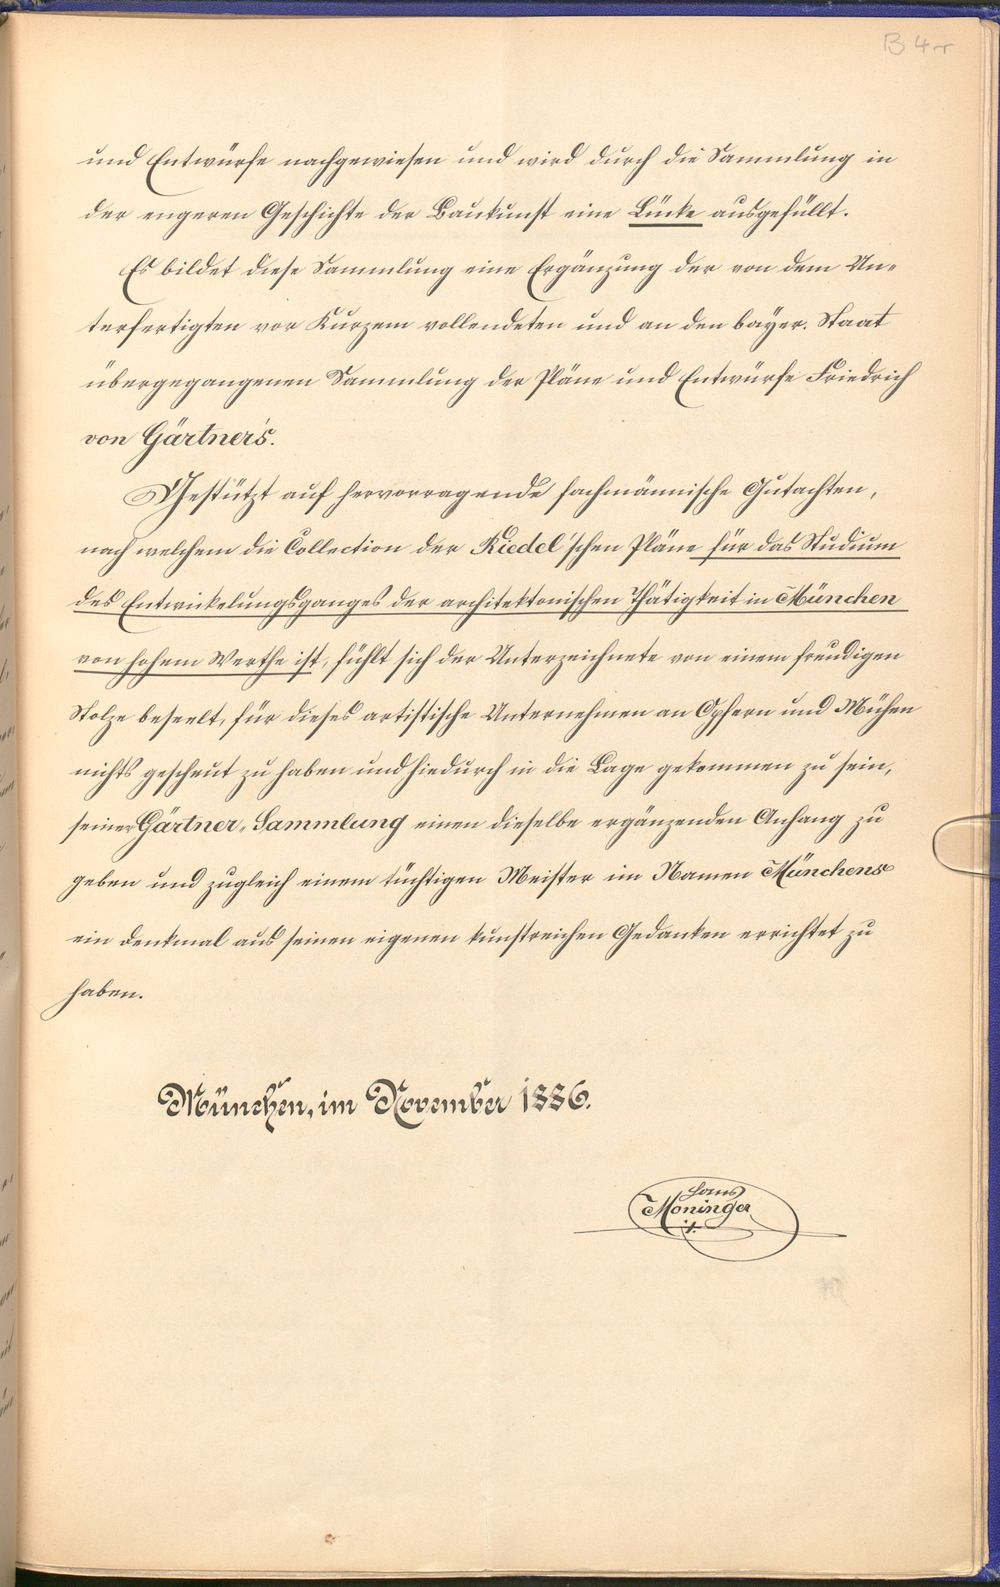 B 4r
und Entwürfe nachgewiesen und wird durch die Sammlung in
der engeren Geschichte der Baukunst eine Lücke ausgefüllt.
Es bildet diese Sammlung eine Ergänzung der von dem Un-
terfertigten vor Kurzem vollendeten und an den bayer. Staat
übergegangenen Sammlung der Pläne und Entwürfe Friedrich
von Gärtner's.
Gestützt auf hervorragende fachmännische Gutachten,
nach welchem die Collection der Riedel'schen Pläne für das Studium
des Entwickelungsganges der architektonischen Thätigkeit in München
von hohem Werthe ist, fühlt sich der Unterzeichnete von einem freudigen
Stolze beseelt, für dieses artistische Unternehmen an Opfern und Mühen
nichts gescheut zu haben und hiedurch in die Lage gekommen zu sein,
seiner Gärtner-Sammlung einen dieselbe ergänzenden Anhang zu
geben und zugleich einem tüchtigen Meister im Namen Münchens
ein Denkmal aus seinen eigenen kunstreichen Gedanken errichtet zu
haben.
München, im November 1886.
Hans
Moninger